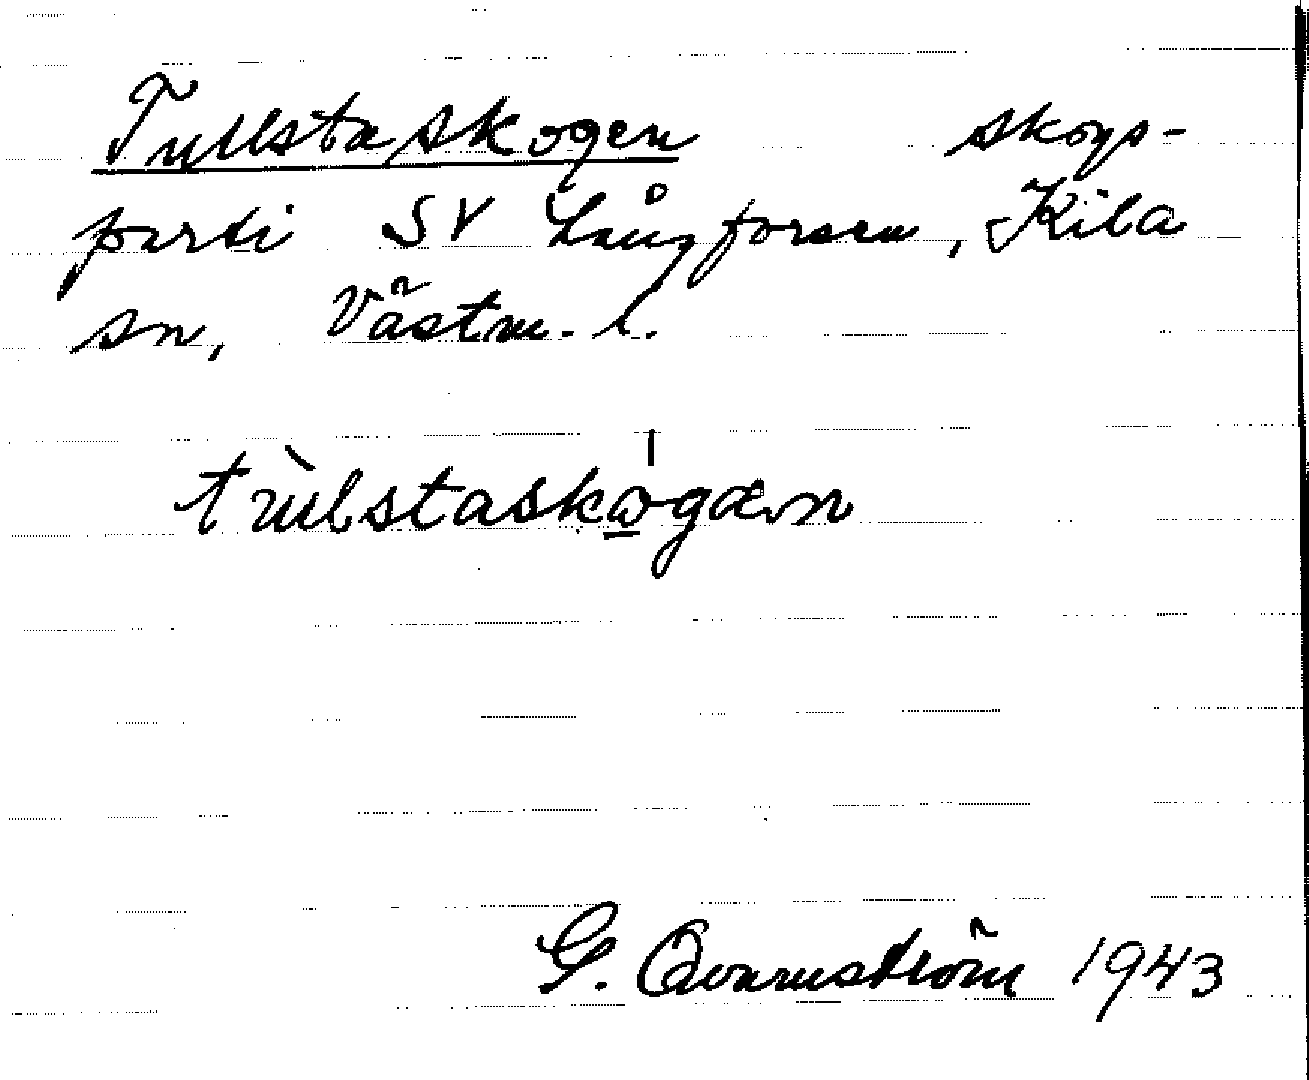 Tullstaskogen skogs-
parti SV Långforsen, Kila
sn, Västm. l.
tùlstaskωgæn
G. Qvarnström 1943